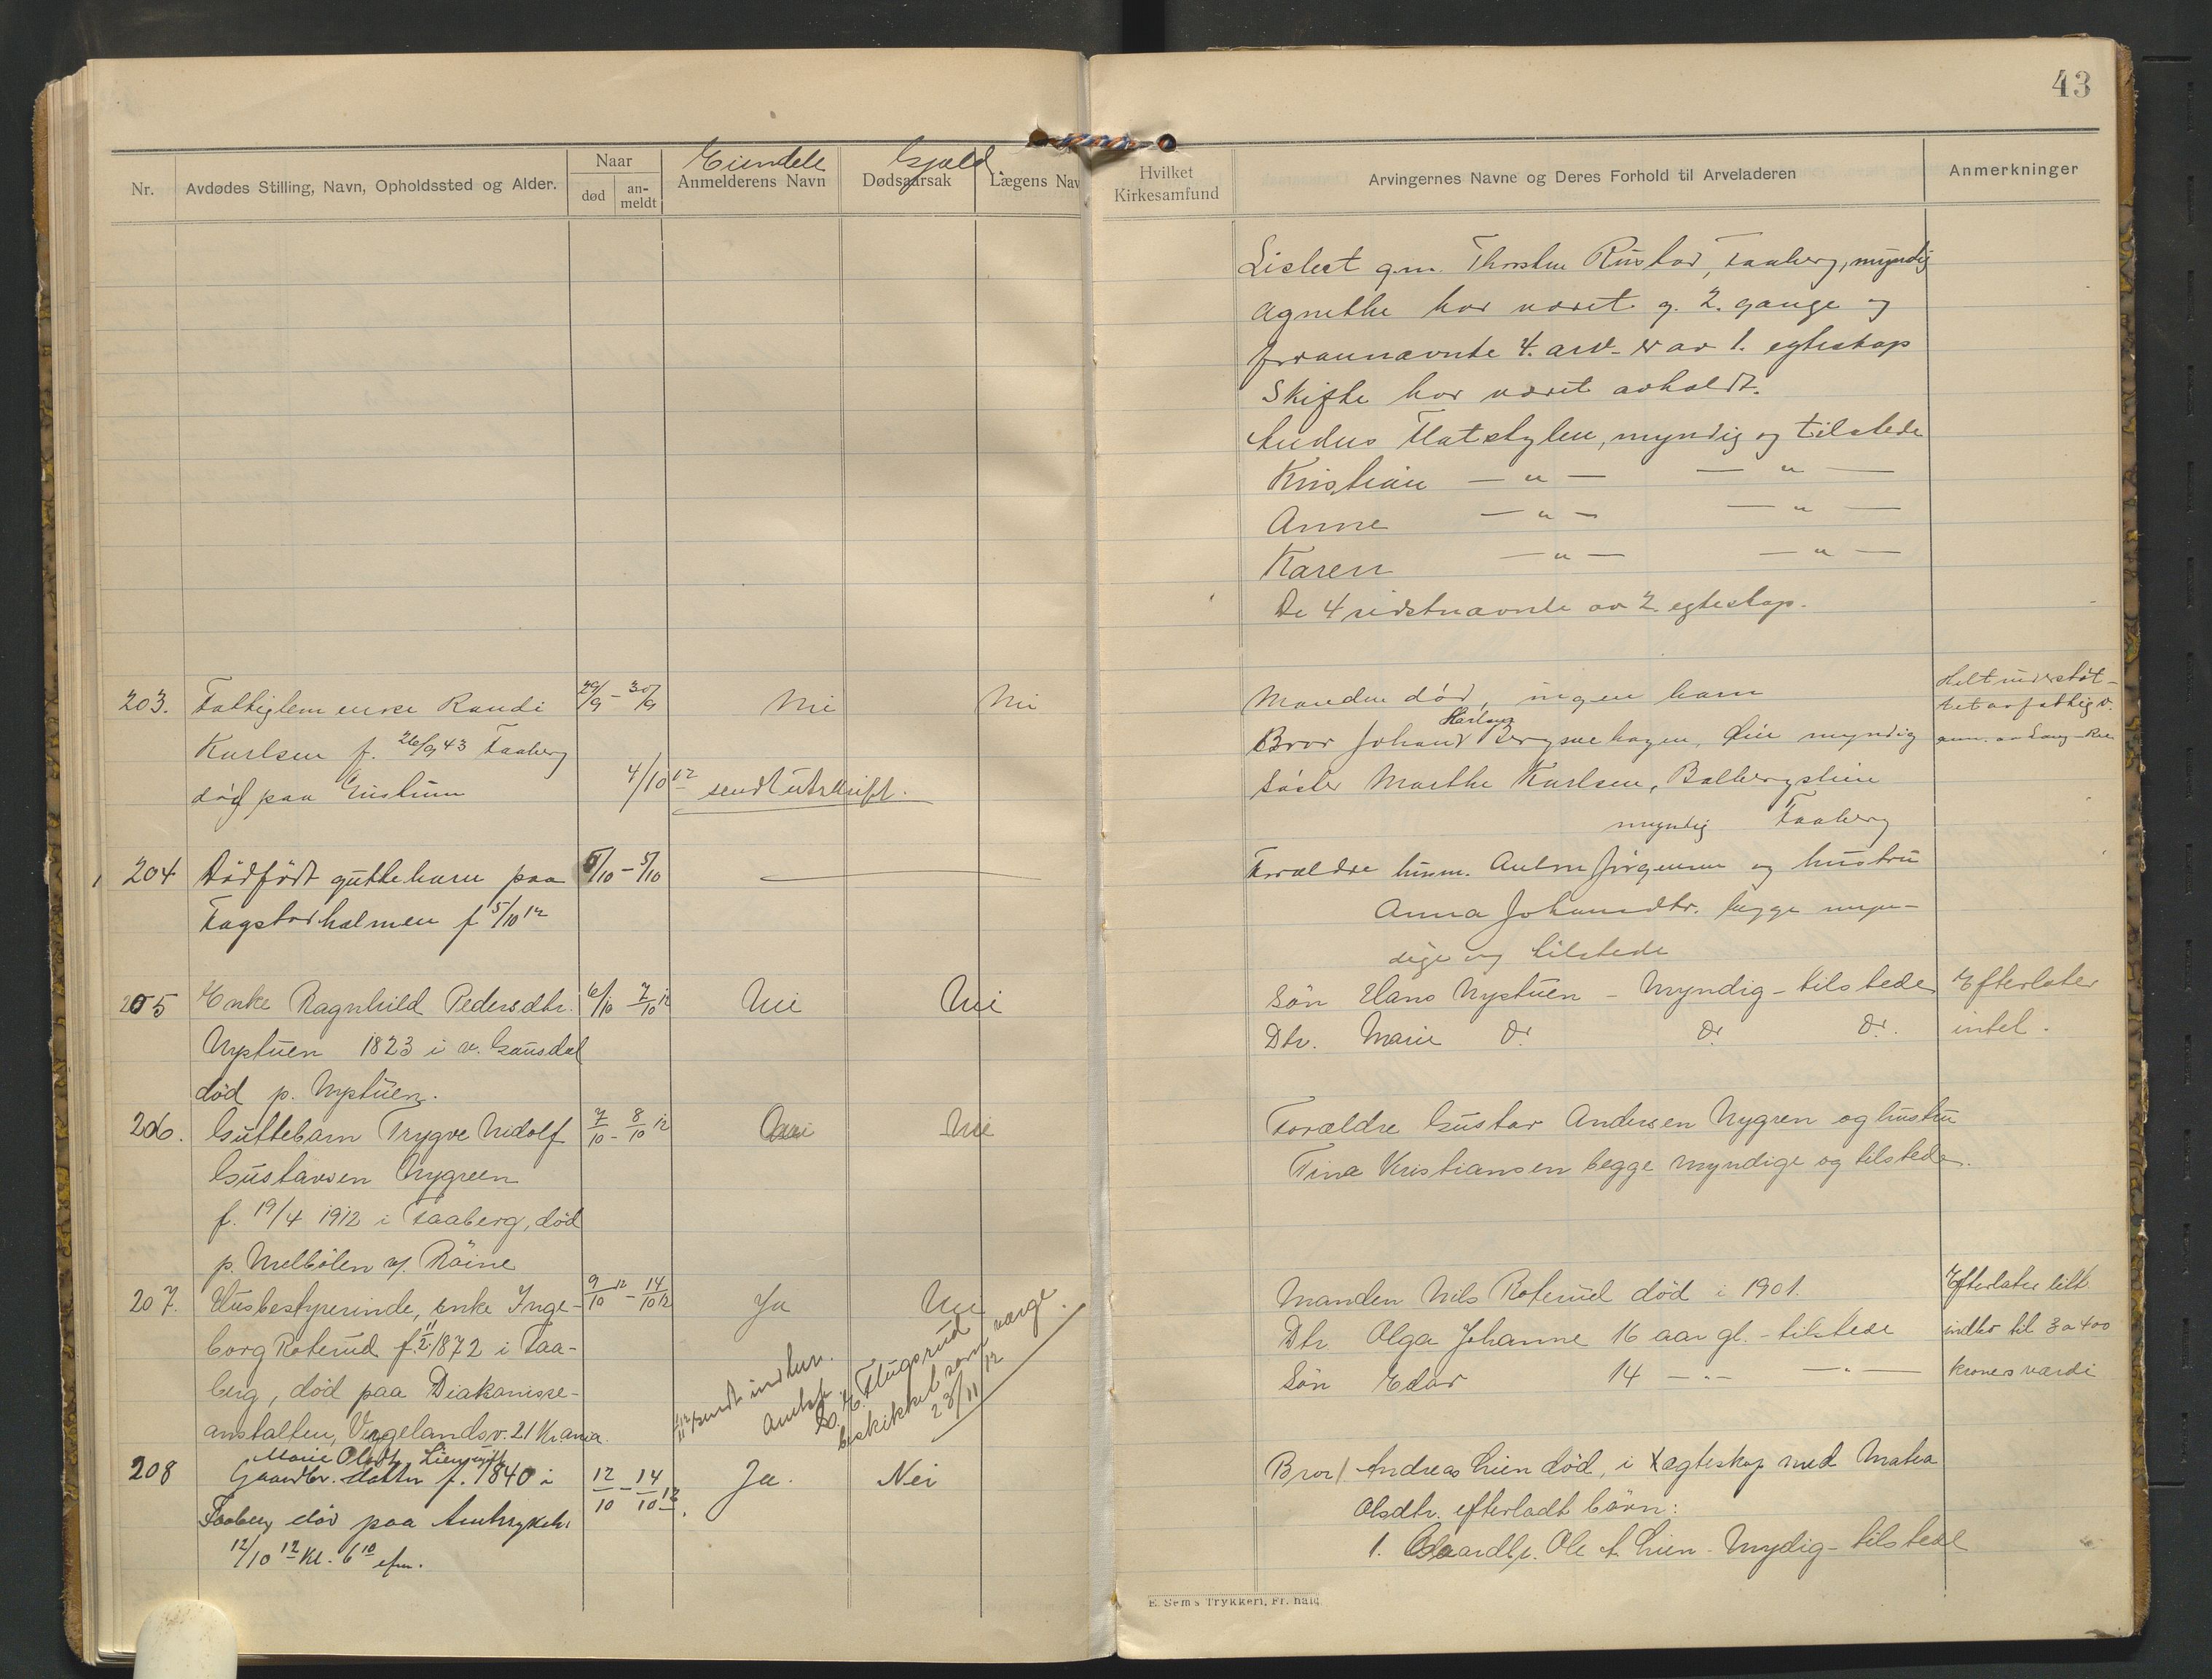 43
Nr.
Avdødes Stilling, Navn, Opholdssted og Alder.
Naar
død
an-
meldt
Eiendele
Anmelderens Navn
Gjæld
Dødsaarsak
Lægens Nav
Hvilket
Kirkesamfund
Arvingernes Navne og Deres Forhold til Arveladeren
Anmerkninger
Lisbet g.m. Thorsten Rustad, Faaberg, myndig
Agnethe har været g. 2. gange og
forannævnte 4. arv. er av 1. egteskap
Skifte har været avholdt.
Flatstylen, myndig og tilstede
Kristian — " — — " —
Anne — " — — " —
Karen — " — — " —
De 4 sidstnævnte av 2. egteskap.
203. Fattiglem enke Randi 29/9 - 30/9 Nei Nei
Karlsen f. 26/9 43 Faaberg
død paa 4/10 12 sendt utskrift.
Manden død, ingen barn
Bror Johans Karlsen myndig
Søster Marthe Karlsen, Balbergslien
myndig Faaberg
Helt understøt-
tet av fattigv.
204 Dødfødt guttebarn paa 5/10 - 5/10 —
Fagstadholmen f 5/10 12
Forældre husm. Anton Jørgensen og hustru
Anna Johansdtr. begge myn-
dige og tilstede
205 Enke Ragnhild Pedersdtr. 6/10 7/10 12 Nei Nei
Nystuen 1823 i v. Gausdal
død p. Nystuen.
Søn Hans Nystuen - Myndig - tilstede
Dtr. Marie Do. Do. Do.
Efterlater
intet.
206. Guttebarn Trygve Nidolf 7/10 - 8/10 12 Nei Nei
Gustavsen Nygreen
f. 19/4 1912 i Faaberg, død
p. Melbölen v/. Röine
Forældre Gustav Andersen Nygren og hustru
Tina Kristiansen begge myndige og tilstede.
207. Husbestyrerinde, enke Inge- 9/10 12 - 14/10 12 Ja Nei
borg Roterud f. 11/2 1872 i Faa-
berg, død paa Diakonisse-
anstalten, Vergelandsv. 21 Kr.ania.
sendt
Flugsrud
beskikket som værge.
23/11 12
Manden Nils Roterud død i 1901.
Dtr. Olga Johanne 16 aar gl. - tilstede
Søn Edar 14 — " — — " —
Efterlater litt
indbo til 3 a 400
kroners værdi
208 Marie Olsdtr. Lien
Gaardbr. datter f. 1840 i 12/10 - 14/10 12. Ja. Nei
Faaberg død paa Amtssykeh.
12/10 12 Kl. 6 10 efm.
Bror /. Andreas Lien død, i ægteskap med Matea
Olsdtr. efterladt börn:
1. Gaardbr. Ole A. Lien - Mydig - tilstede
E. Sem's Trykkeri, Fr.hald